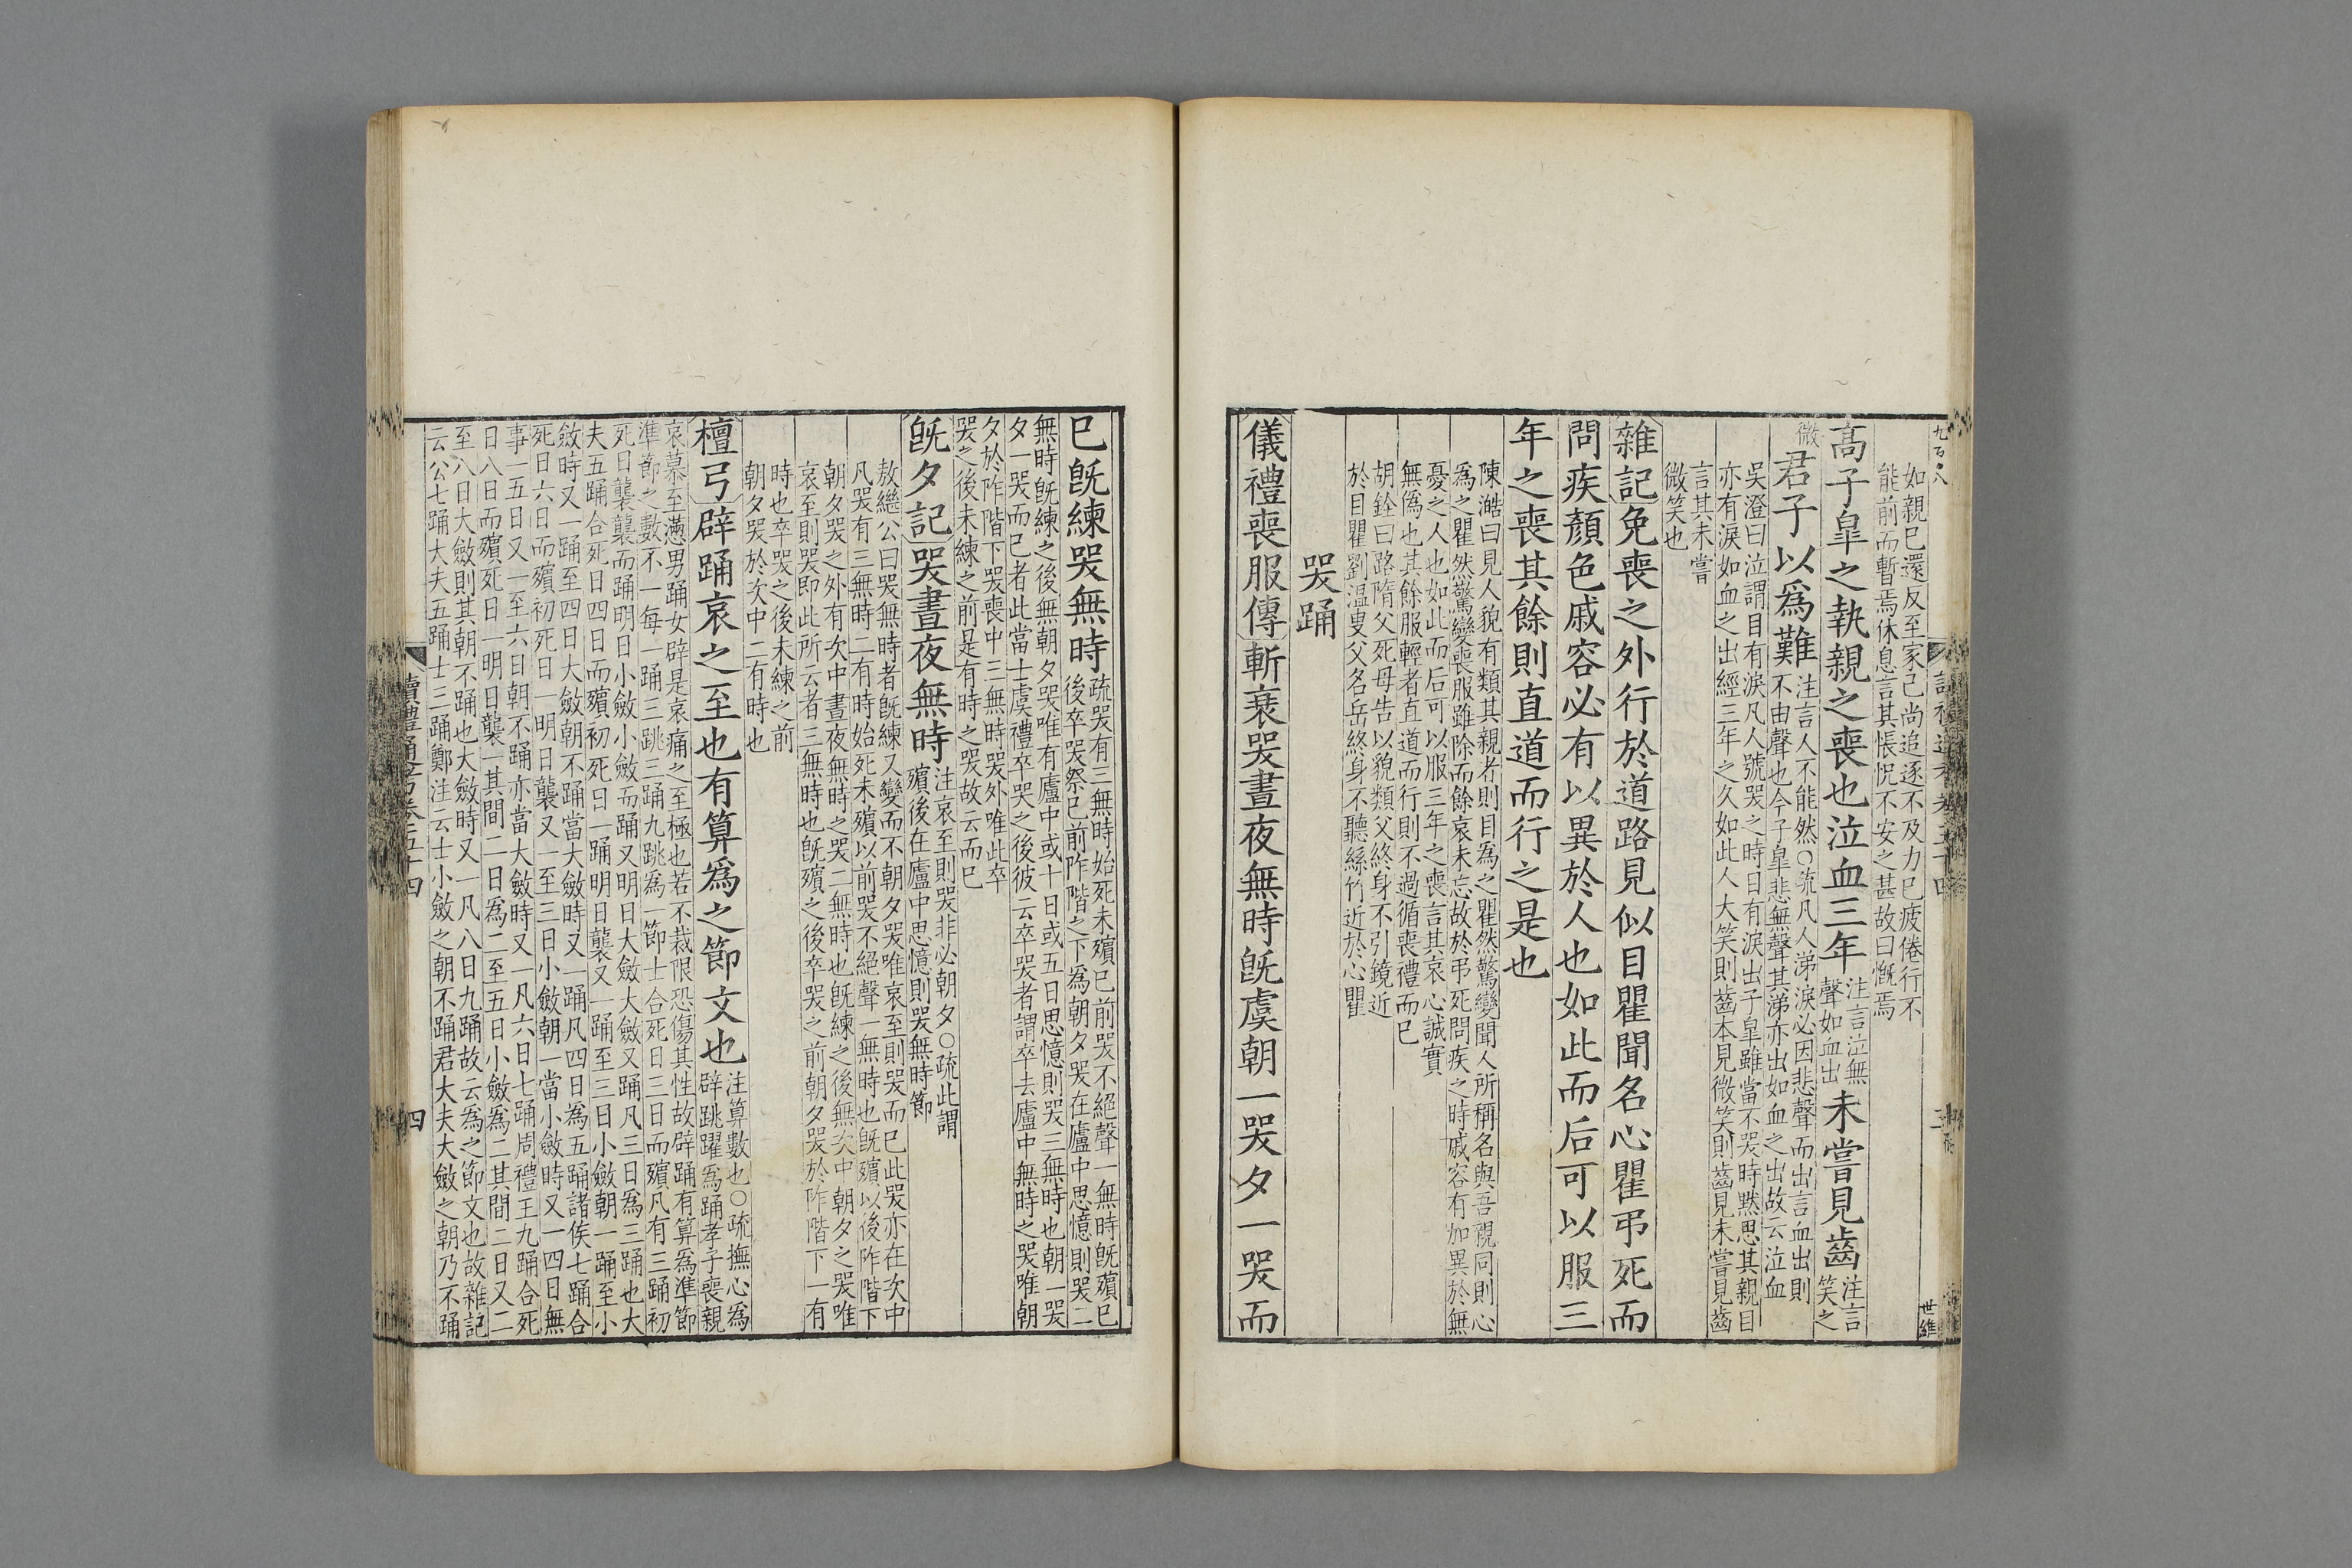 如親已還反至家己尚追逐不及力已疲倦行不
能前而暫焉休息言其悵怳不安之甚故曰慨焉
高子皐之執親之喪也泣血三年注言泣無聲如血出未嘗見齒注言笑之
微君子以爲難注言人不能然○疏凡人涕淚必因悲聲而出言血出則
不由聲也今子皐悲無聲其涕亦出如血之出故云泣血
吳澄曰泣謂目有淚凡人號哭之時目有淚出子皐雖當不哭時黙思其親目
亦有淚如血之出經三年之久如此人大笑則齒本見微笑則齒見未嘗見齒
言其未嘗
微笑也
雜記免喪之外行於道路見似目瞿聞名心瞿弔死而
問疾顏色戚容必有以異於人也如此而后可以服三
年之喪其餘則直道而行之是也
陳澔曰見人貌有類其親者則目爲之瞿然驚變聞人所稱名與吾親同則心
爲之瞿然驚變喪服雖除而餘哀未忘故於弔死問疾之時戚容有加異於無
憂之人也如此而后可以服三年之喪言其哀心誠實
無僞也其餘服輕者直道而行則不過循喪禮而已
胡銓曰路隋父死母告以貌類父終身不引鏡近
於目瞿劉温叟父名岳終身不聽絲竹近於心瞿
哭踊
儀禮喪服傳斬衰哭晝夜無時旣虞朝一哭夕一哭而
已旣練哭無時疏哭有三無時始死未殯已前哭不絕聲一無時旣殯已
後卒哭祭已前阼階之下爲朝夕哭在廬中思憶則哭二
無時旣練之後無朝夕哭唯有廬中或十日或五日思憶則哭三無時也朝一哭
夕一哭而已者此當士虞禮卒哭之後彼云卒哭者謂卒去廬中無時之哭唯朝
夕於阼階下哭喪中三無時哭外唯此卒
哭之後未練之前是有時之哭故云而已
旣夕記哭晝夜無時注哀至則哭非必朝夕○疏此謂
殯後在廬中思憶則哭無時節
敖繼公曰哭無時者旣練又變而不朝夕哭唯哀至則哭而已此哭亦在次中
凡哭有三無時二有時始死未殯以前哭不絕聲一無時也旣殯以後阼階下
朝夕哭之外有次中晝夜無時之哭二無時也旣練之後無次中朝夕之哭唯
哀至則哭即此所云者三無時也旣殯之後卒哭之前朝夕哭於阼階下一有
時也卒哭之後未練之前
朝夕哭於次中二有時也
檀弓辟踊哀之至也有算爲之節文也注算數也○疏撫心爲
辟跳躍爲踊孝子喪親
哀慕至懣男踊女辟是哀痛之至極也若不裁限恐傷其性故辟踊有算爲準節
準節之數不一每一踊三跳三踊九跳爲一節士合死日三日而殯凡有三踊初
死日襲襲而踊明日小斂小斂而踊又明日大斂大斂又踊凡三日爲三踊也大
夫五踊合死日四日而殯初死日一踊明日襲又一踊至三日小斂朝一踊至小
斂時又一踊至四日大斂朝不踊當大斂時又一踊凡四日爲五踊諸侯七踊合
死日六日而殯初死日一明日襲又一至三日小斂朝一當小斂時又一四日無
事一五日又一至六日朝不踊亦當大斂時又一凡六日七踊周禮王九踊合死
日八日而殯死日一明日襲一其間二日爲二至五日小斂爲二其間二日又二
至八日大斂則其朝不踊也大斂時又一凡八日九踊故云爲之節文也故雜記
云公七踊大夫五踊士三踊鄭注云士小斂之朝不踊君大夫大斂之朝乃不踊
讀禮通考卷五十四
四